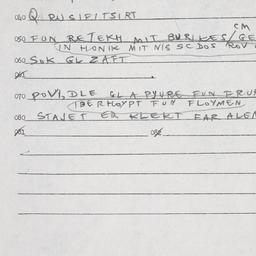 040 Q DUSIFITSIRT
CM
050 FUN RETEKH MIT BURIKES/GE
IN HONIK MIT NIS SCDOS ROV
060 SOK GLZAFT
070 POVIDLE GL A PYURE FUN FRU
IBERHOYPT FUN FLOYMEN
080 STAJET ER KLEKT FAR ALEM